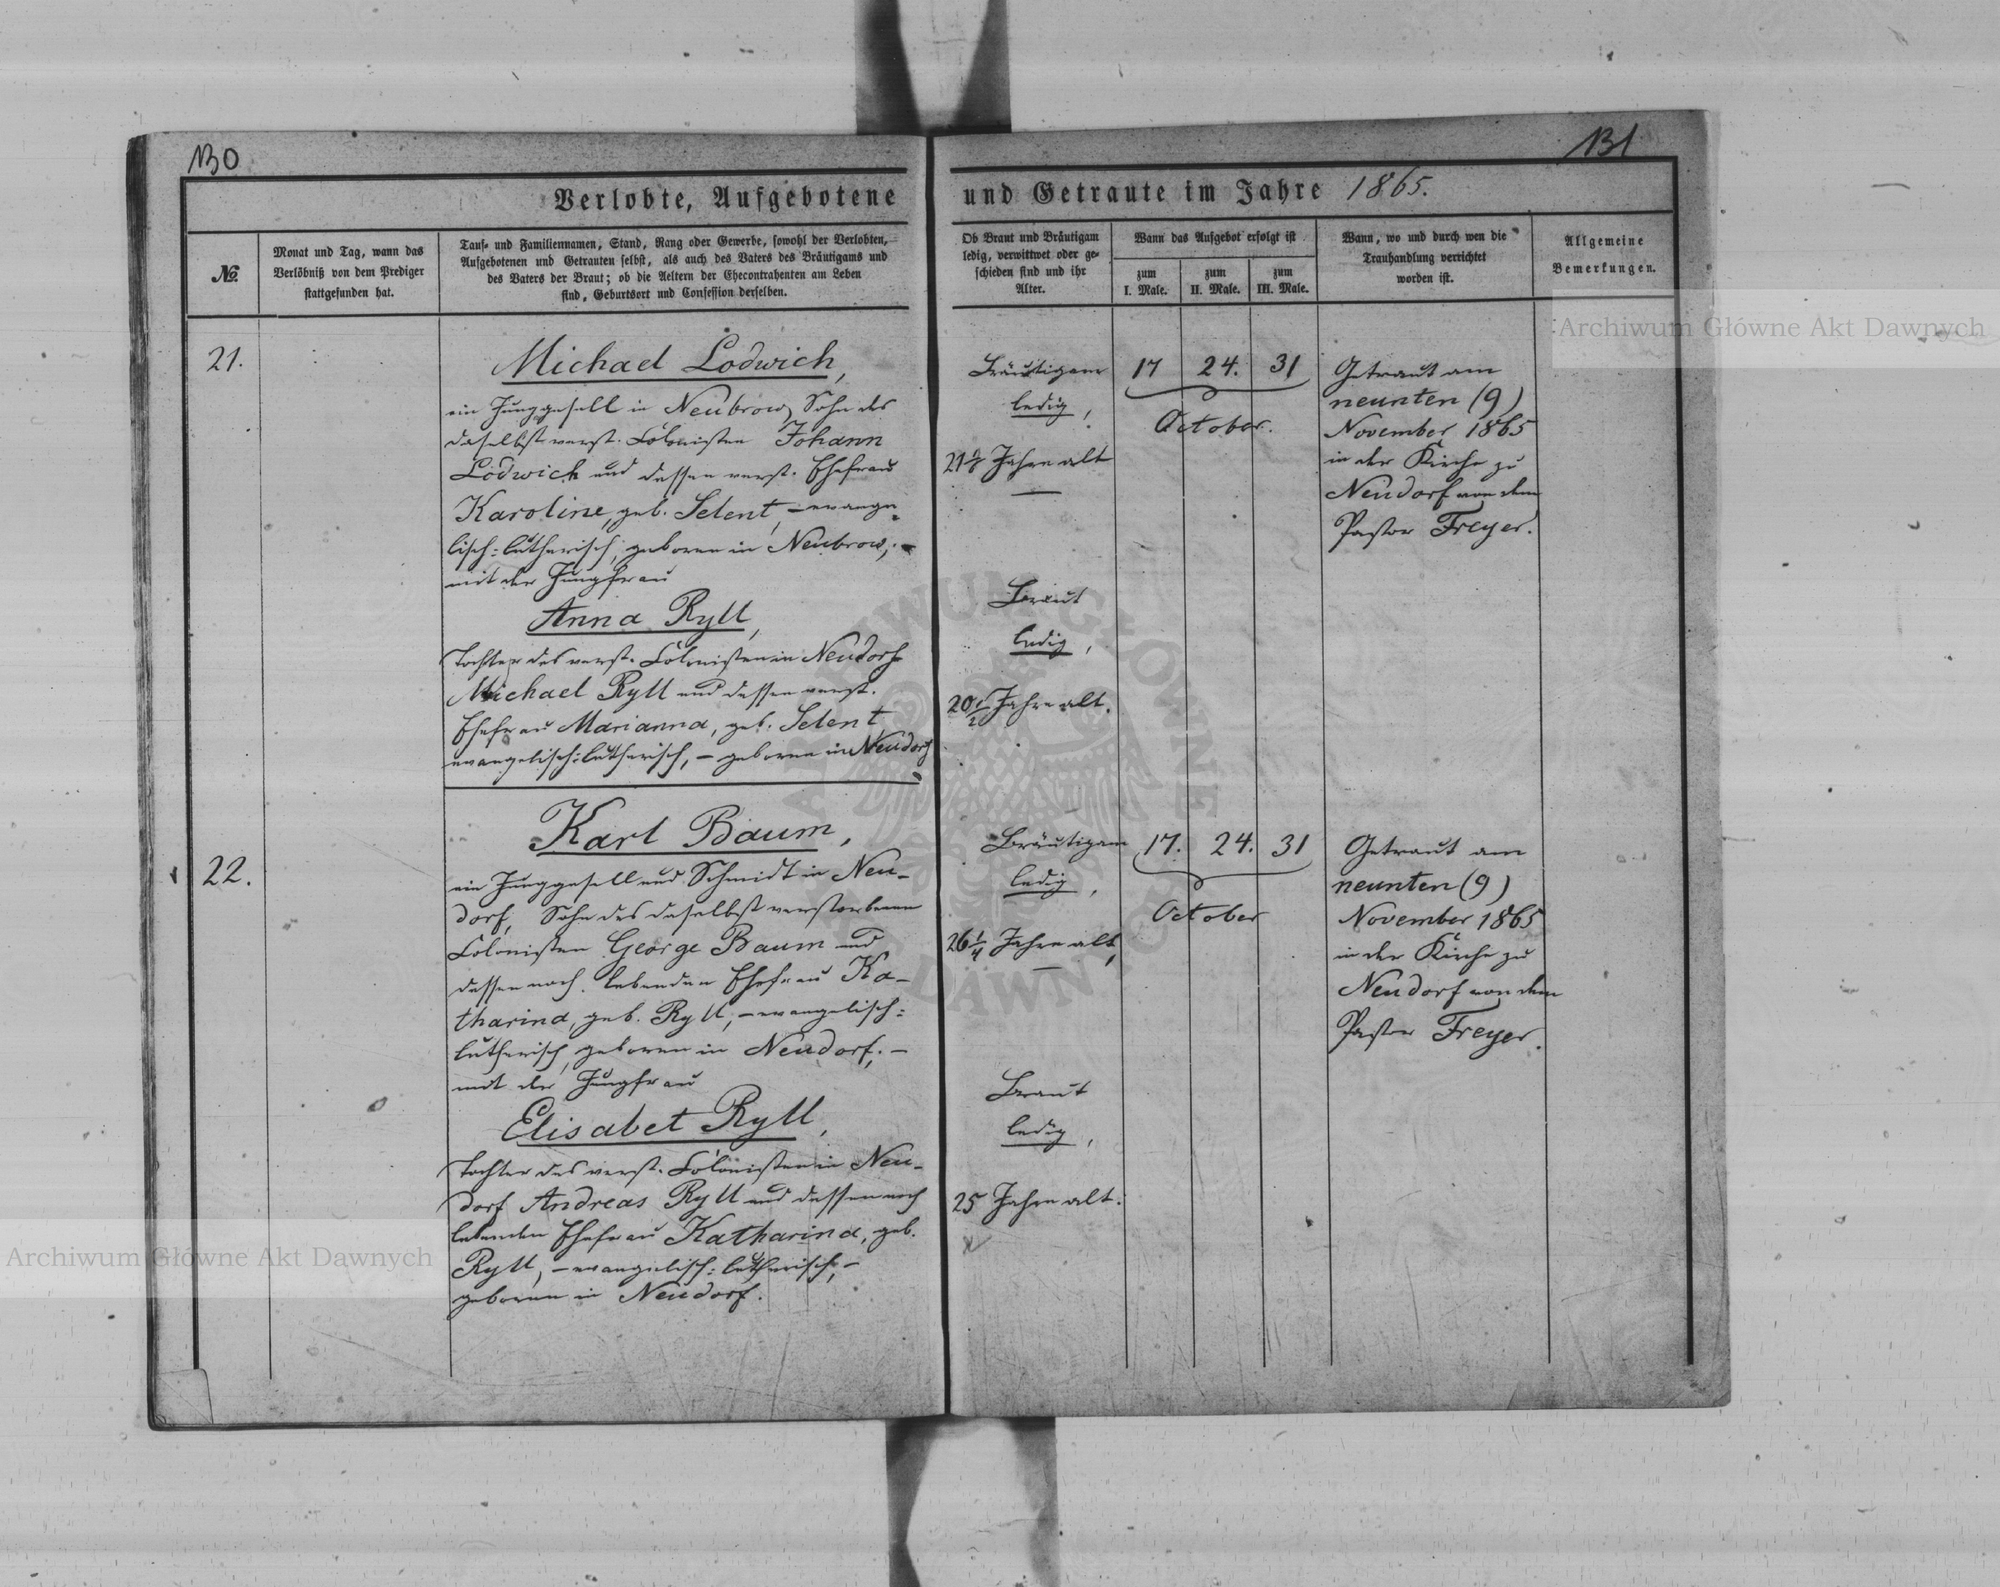 130
131
Verlobte, Aufgebotene und Getraute im Jahre 1865.
№
Monat und Tag, wann das
Verlöbniß von dem Prediger
stattgefunden hat.
Tauf- und Familiennamen, Stand, Rang oder Gewerbe, sowohl der Verlobten,
Aufgebotenen und Getrauten selbst, als auch des Vaters des Bräutigams und
des Vaters der Braut; ob die Aeltern der Ehecontrahenten am Leben
sind, Geburtsort und Confession derselben.
Ob Braut und Bräutigam
ledig, verwittwet oder ge-
schieden sind und ihr
Alter.
Wann das Aufgebot erfolgt ist
zum
I. Male.
zum
II. Male.
zum
III. Male.
Wann, wo und durch wen die
Trauhandlung verrichtet
worden ist.
Allgemeine
Bemerkungen.
21.
Michael Lodwich,
ein Junggesell in Neubrow, Sohn des
daselbst verst. Colonisten Johann
Lodwich und dessen verst. Ehefrau
Karoline, geb. Selent, – evange-
lisch-lutherisch, geboren in Neubrow, –
mit der Jungfrau
Anna Ryll,
Tochter des verst. Colonisten in Neudorf
Michael Ryll und dessen verst.
Ehefrau Marianna, geb. Selent
evangelisch-lutherisch, – geboren in Neudorf
Bräutigam
ledig,
Jahre alt
Braut
ledig,
20 1/2 Jahre alt.
17 24. 31
October.
Getraut am
neunten (9)
November 1865
in der Kirche zu
Neudorf von dem
Pastor Freyer.
22.
Karl Baum,
ein Junggesell und Schmidt in Neu-
dorf, Sohn des daselbst verstorbenen
Colonisten George Baum und
dessen noch lebenden Ehefrau Ka-
tharina, geb. Ryll, – evangelisch-
lutherisch, geboren in Neudorf; –
mit der Jungfrau
Elisabet Ryll,
Tochter des verst. Colonisten in Neu-
dorf Andreas Ryll und dessen noch
lebenden Ehefrau Katharina, geb.
Ryll, – evangelisch-lutherisch, –
geboren in Neudorf.
Bräutigam
ledig,
26 1/4 Jahre alt,
Braut
ledig,
25 Jahre alt.
17. 24. 31
October
Getraut am
neunten (9)
November 1865
in der Kirche zu
Neudorf von dem
Pastor Freyer.
Archiwum Główne Akt Dawnych
Archiwum Główne Akt Dawnych
ARCHIWUM GŁÓWNE AKT DAWNYCH